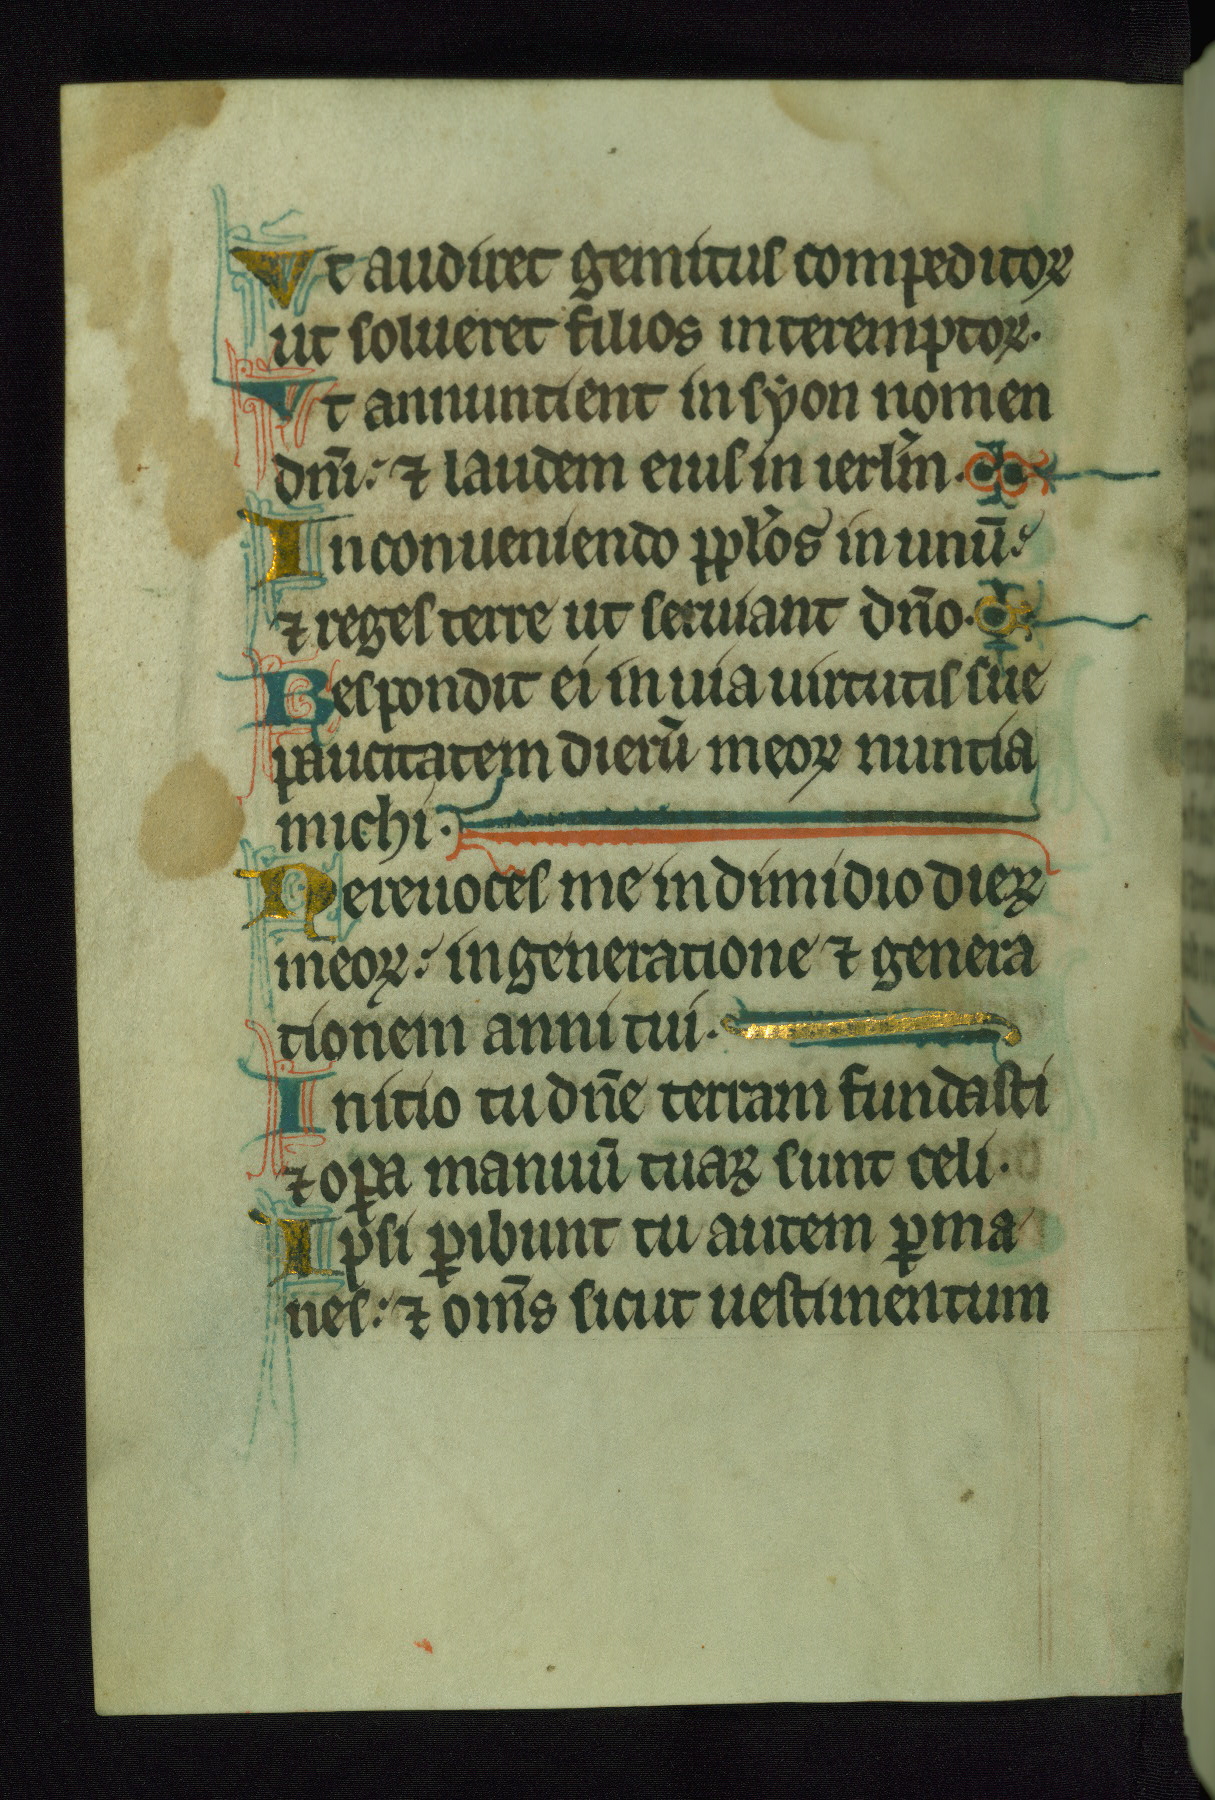 Ut audiret gemitus compeditoꝝ
ut solueret filios interemptoꝝ.
Ut annuntient in syon nomen
dñi: ⁊ laudem eius in ierlm̄.
In conueniendo pplo̾s in unū:
⁊ reges terre ut seruiant dño.
Respondit ei in uia uirtutis sue
paucitatem dierū meoꝝ nuntia
michi.
Ne reuoces me in dimidio dieꝝ
meoꝝ: in generatione ⁊ genera
tionem anni tui.
Initio tu dñe terram fundasti
⁊ oꝑa manuū tuaꝝ sunt celi.
Ipsi ꝑibunt tu autem ꝑma
nes: ⁊ om̄s sicut uestimentum